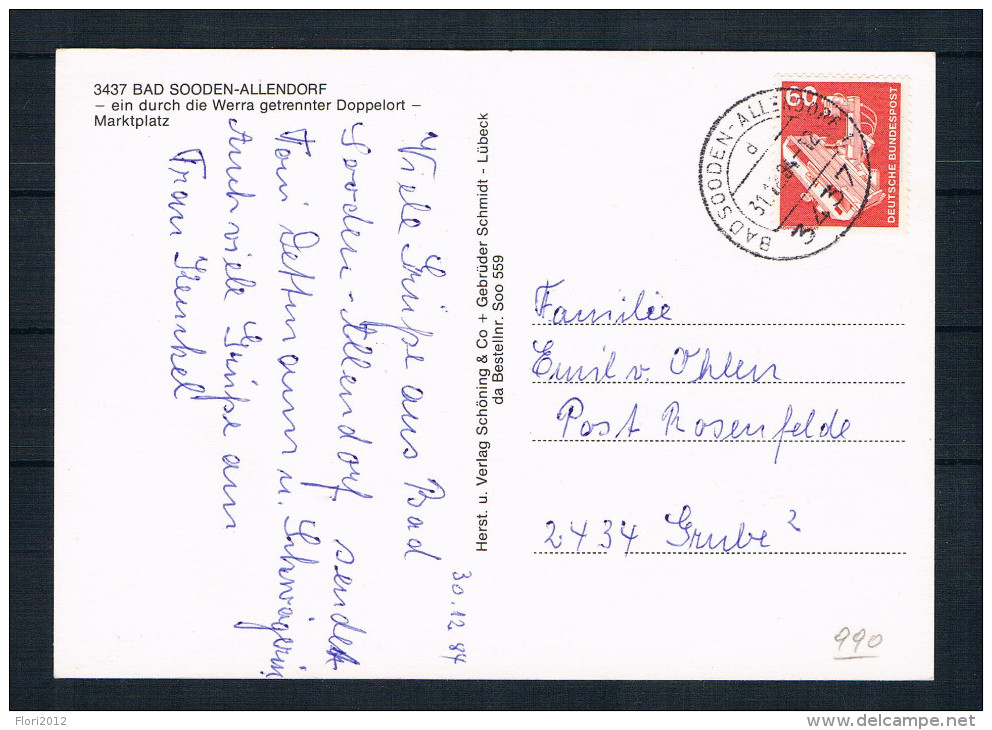 3437 BAD SOODEN-ALLENDORF
– ein durch die Werra getrennter Doppelort –
Marktplatz
Viele Grüße aus Bad
Sooden-Allendorf sendet
Toni Dettmann u. Schwägerin
Auch viele Grüße an
Frau Henkel
30.12 84
Herst. u. Verlag Schöning & Co + Gebrüder Schmidt - Lübeck
da Bestellnr. Soo 559
60
DEUTSCHE BUNDESPOST
BAD SOODEN-ALLENDORF 1
d
31.12.84
3437
Familie
Emil v. Ohlen
Post Rosenfelde
2434 Grube 2
990
Flori2012
www.delcampe.net